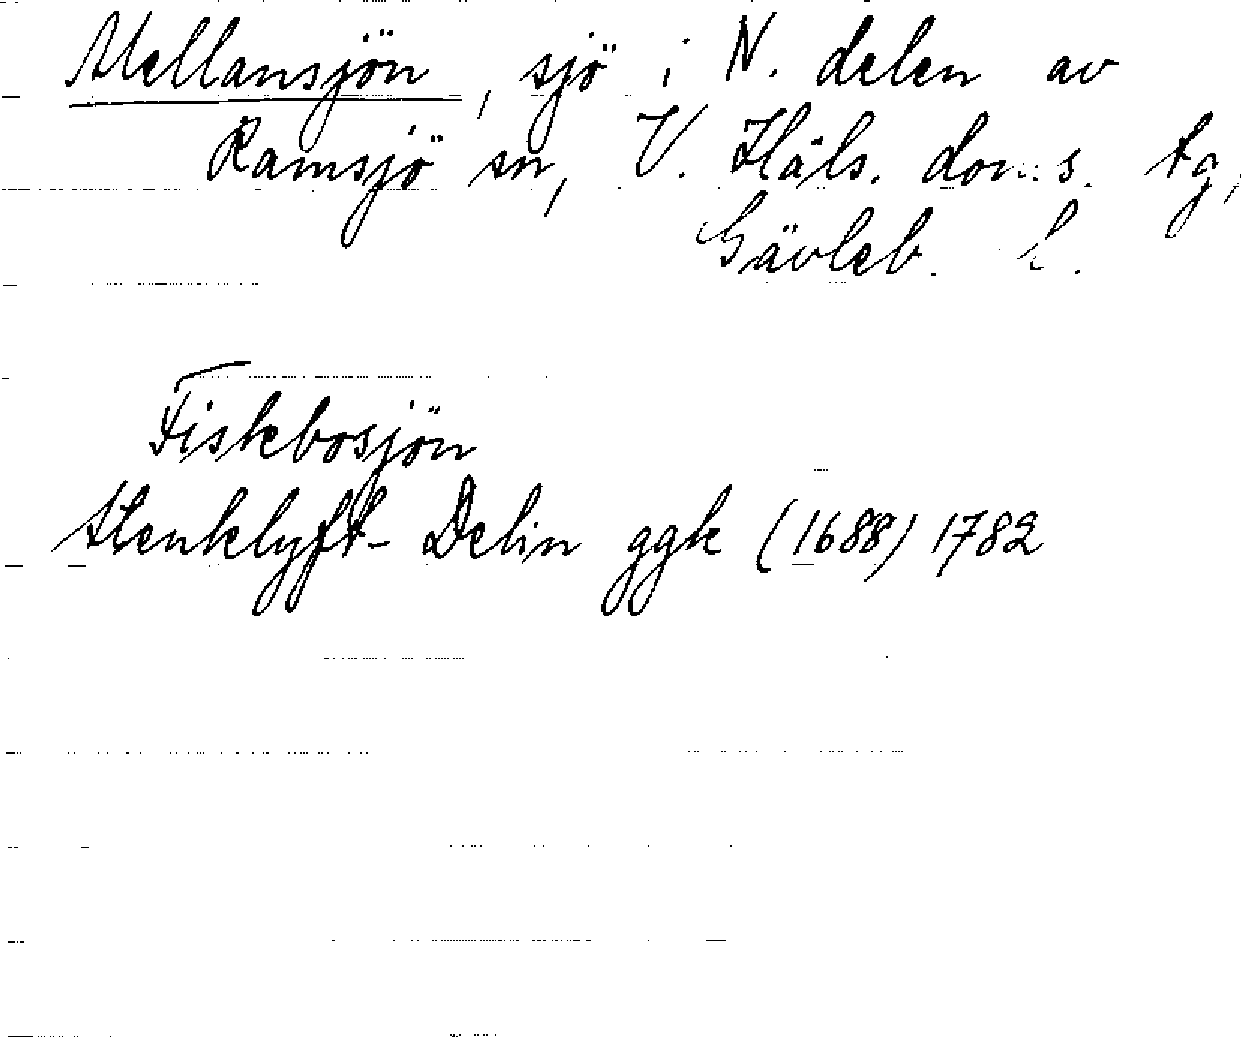 Mellansjön, sjö i N. delen av
Ramsjö sn, V. Häls. doms. tg,
Gävleb. l.
Fiskbosjön
Stenklyft- Delin ggk (1688) 1782